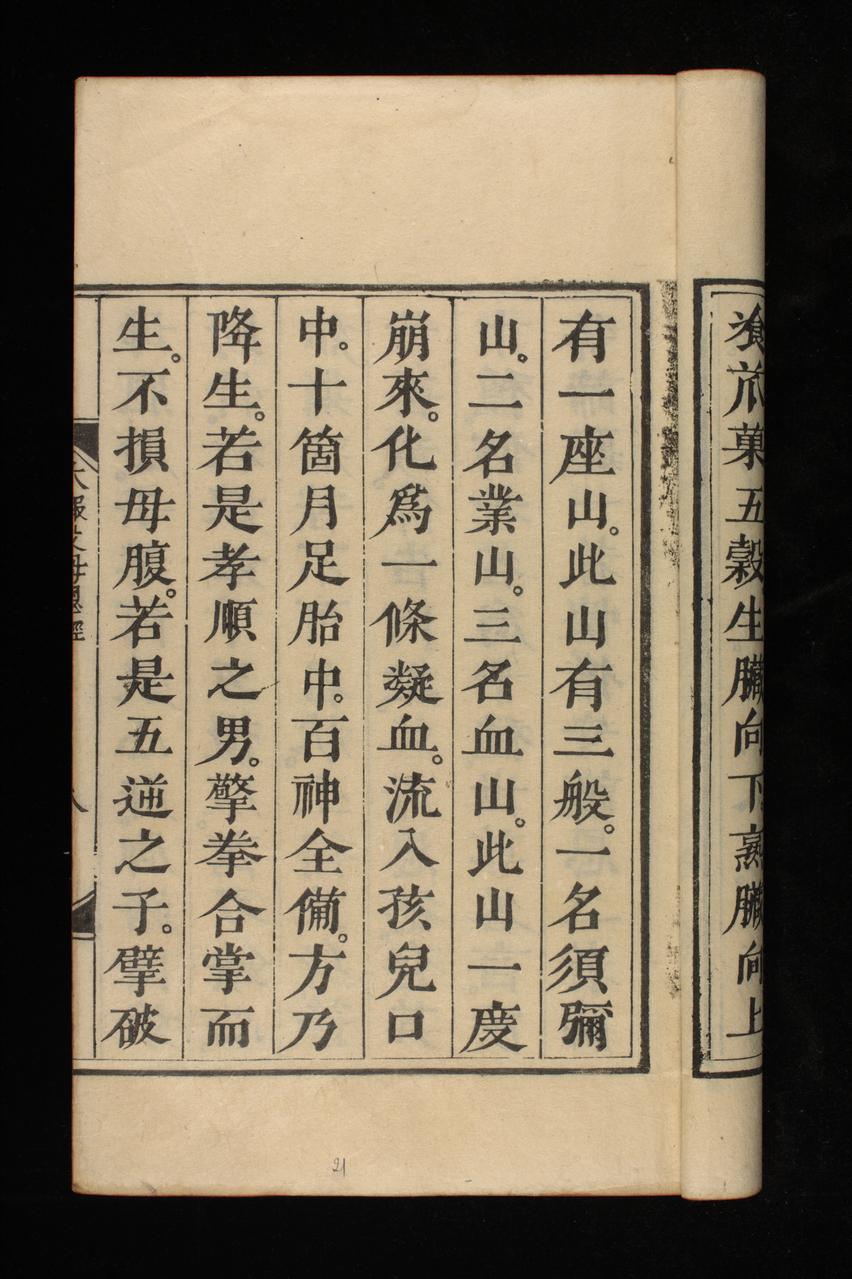 飡苽菓五穀生臟向下熟臟向上
有一座山。此山有三般。一名須彌
山。二名業山。三名血山。此山一度
崩來。化爲一條凝血。流入孩兒口
中。十箇月足胎中。百神全備。方乃
降生。若是孝順之男。擎拳合掌而
生。不損母腹。若是五逆之子。擘破
大報父母恩經
八
21